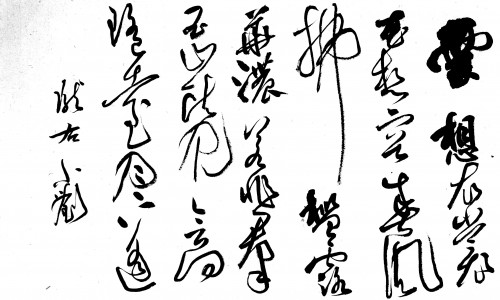 雲想衣裳
花想容春風
拂檻露
華濃若非羣
玉山頭見會向
瑤臺月下逢
右小